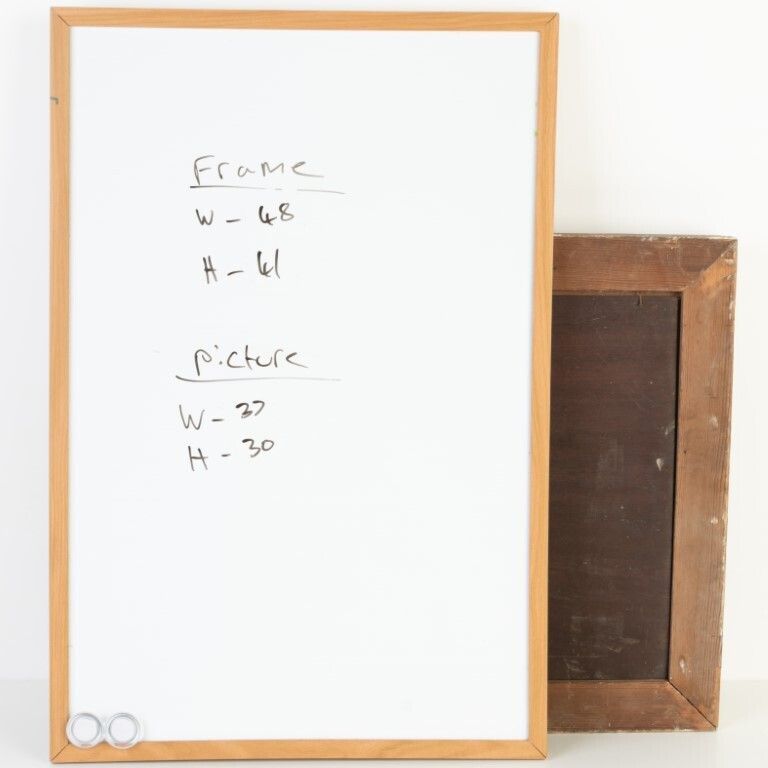 Frame
W - 48
H - 41
picture
W - 37
H - 30